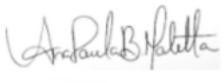 Ana Paula B Maletta